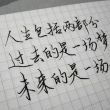 人生包括两部分
过去的是一场梦
未来的是一场